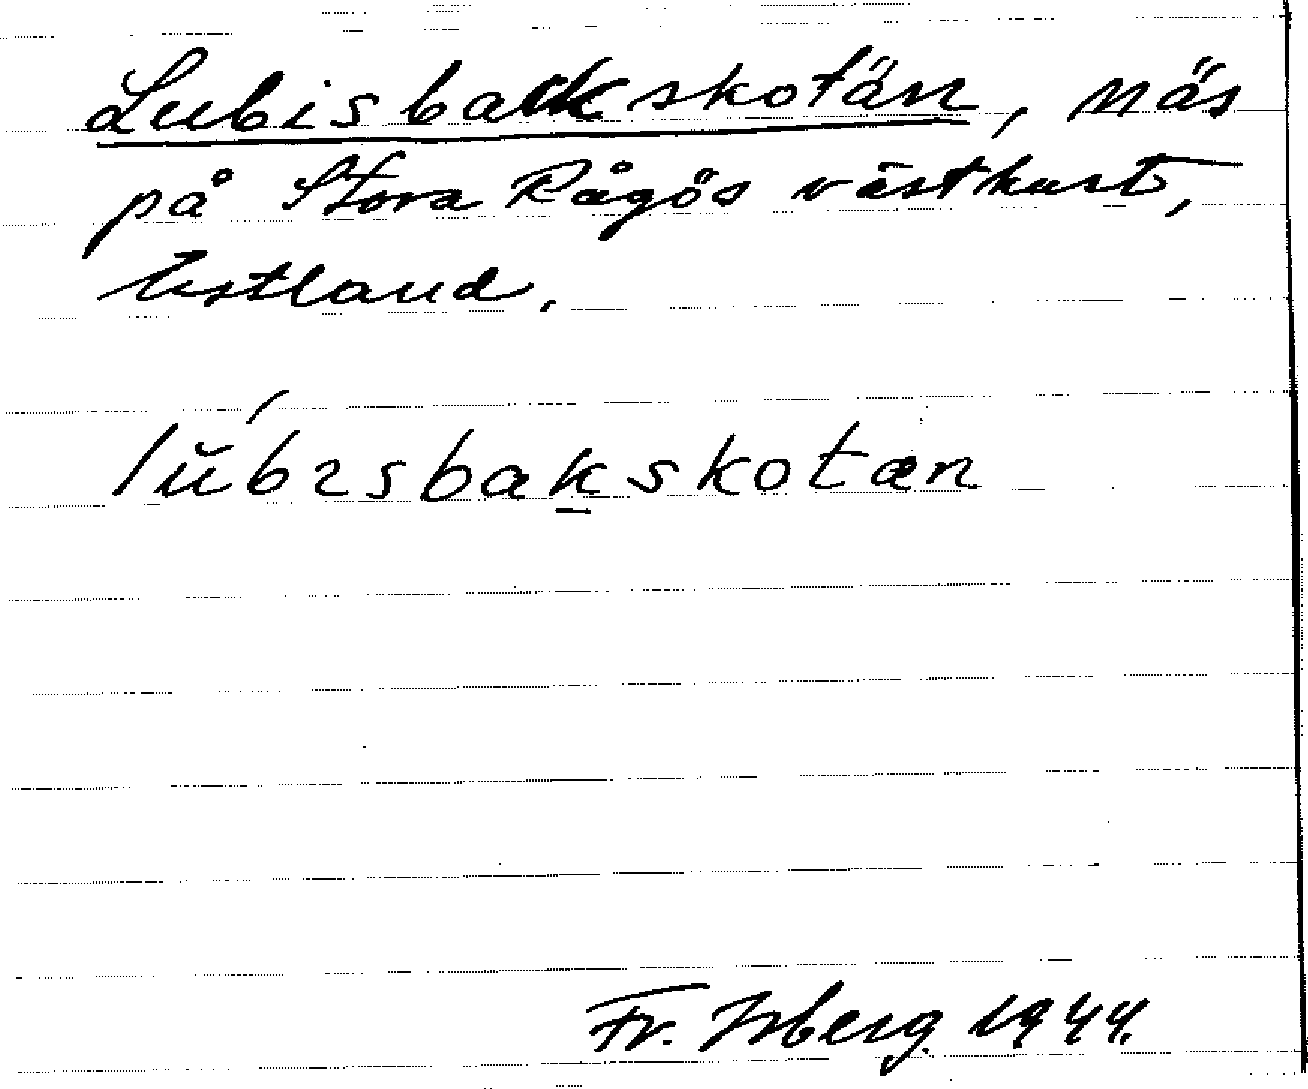 Lubisbackskotän, näs
på Stora Rågös västkust,
Estland.
lŭ́bısbak̲skotæn
Fr. Isberg 1944.